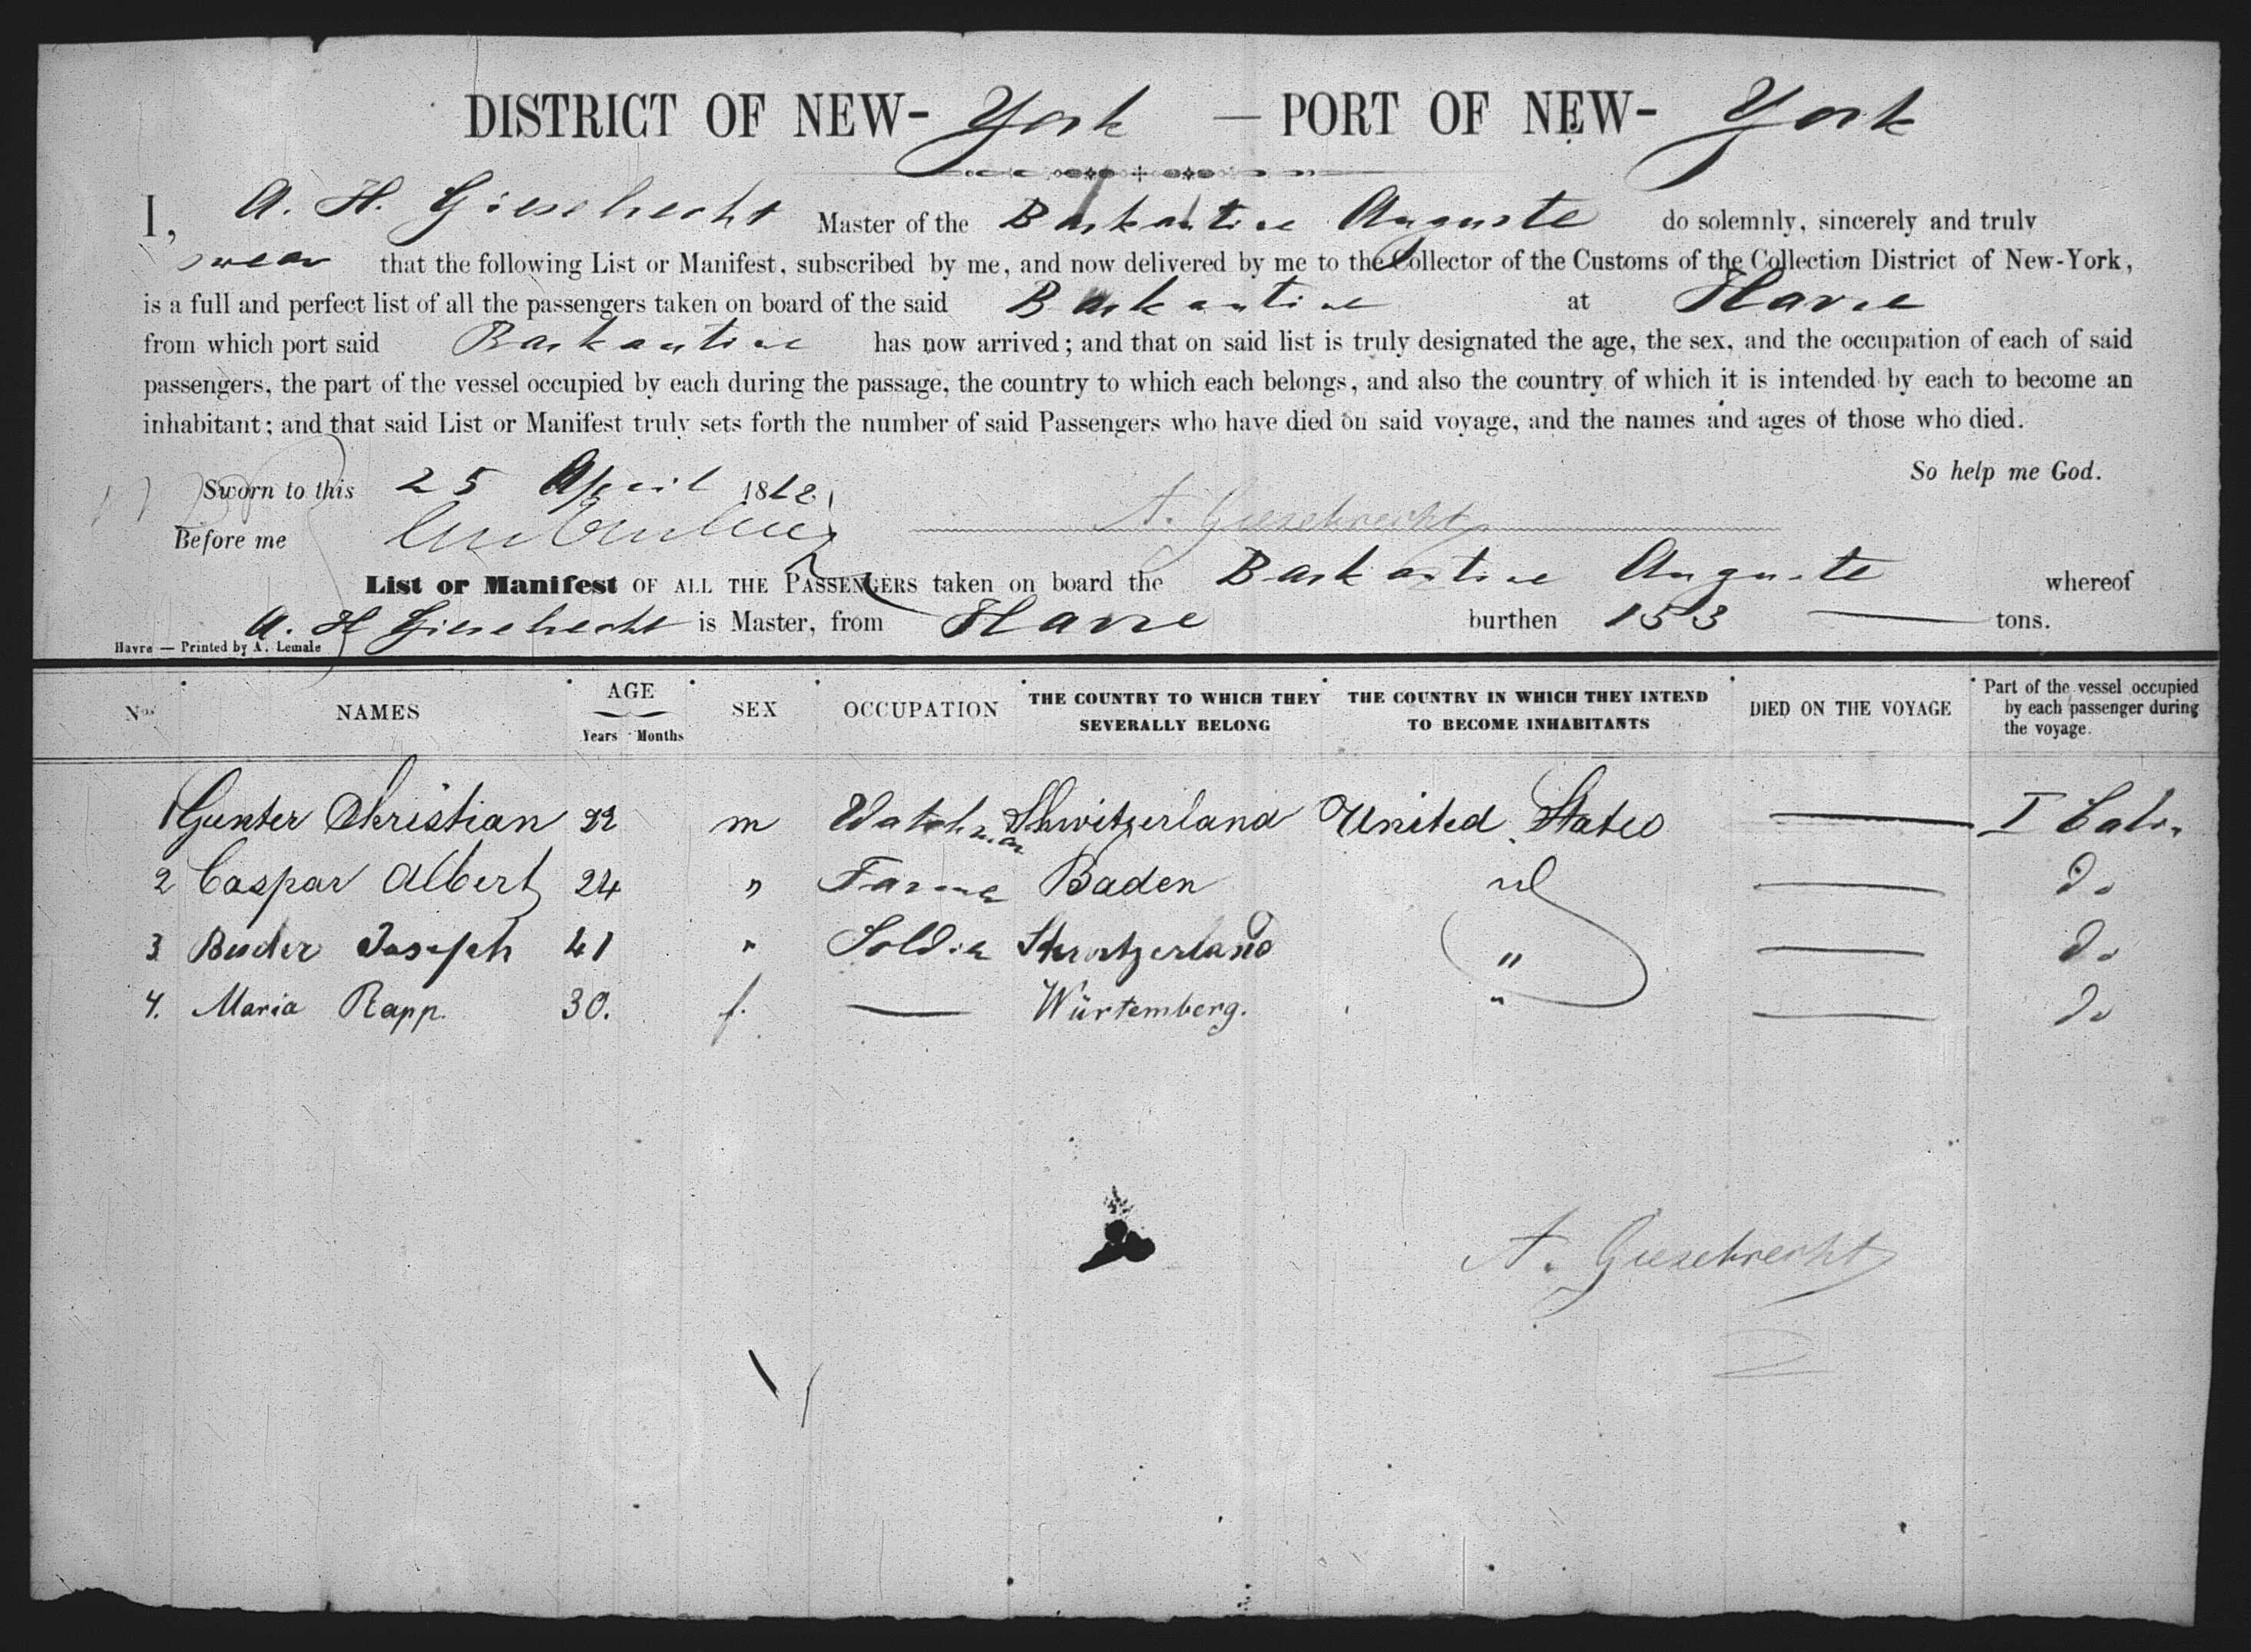 DISTRICT OF NEW- York — PORT OF NEW- York
I, A. H. Giesebrecht Master of the Barkantine Auguste do solemnly, sincerely and truly
swear that the following List or Manifest, subscribed by me, and now delivered by me to the Collector of the Customs of the Collection District of New-York,
is a full and perfect list of all the passengers taken on board of the said Barkantine at Havre
from which port said Barkantine has now arrived; and that on said list is truly designated the age, the sex, and the occupation of each of said
passengers, the part of the vessel occupied by each during the passage, the country to which each belongs, and also the country of which it is intended by each to become an
inhabitant; and that said List or Manifest truly sets forth the number of said Passengers who have died on said voyage, and the names and ages of those who died.
So help me God.
Sworn to this 25 April 1862
Before me
A. Giesebrecht
List or Manifest OF ALL THE PASSENGERS taken on board the Barkantine Auguste whereof
A. H Giesebrecht is Master, from Havre burthen 153 — tons.
Havre — Printed by A. Lemale
Nos NAMES AGE Years Months SEX OCCUPATION THE COUNTRY TO WHICH THEY SEVERALLY BELONG THE COUNTRY IN WHICH THEY INTEND TO BECOME INHABITANTS DIED ON THE VOYAGE Part of the vessel occupied by each passenger during the voyage.
1 Gunter Christian 22 m Watchman Shwitzerland United States — I Cab.
2 Caspar Albert 24 " Farmer Baden — do
3 Buder Joseph 41 " Soldier Shwitzerland " — do
4. Maria Rapp. 30. f. — Würtemberg. " — do
A. Giesebrecht